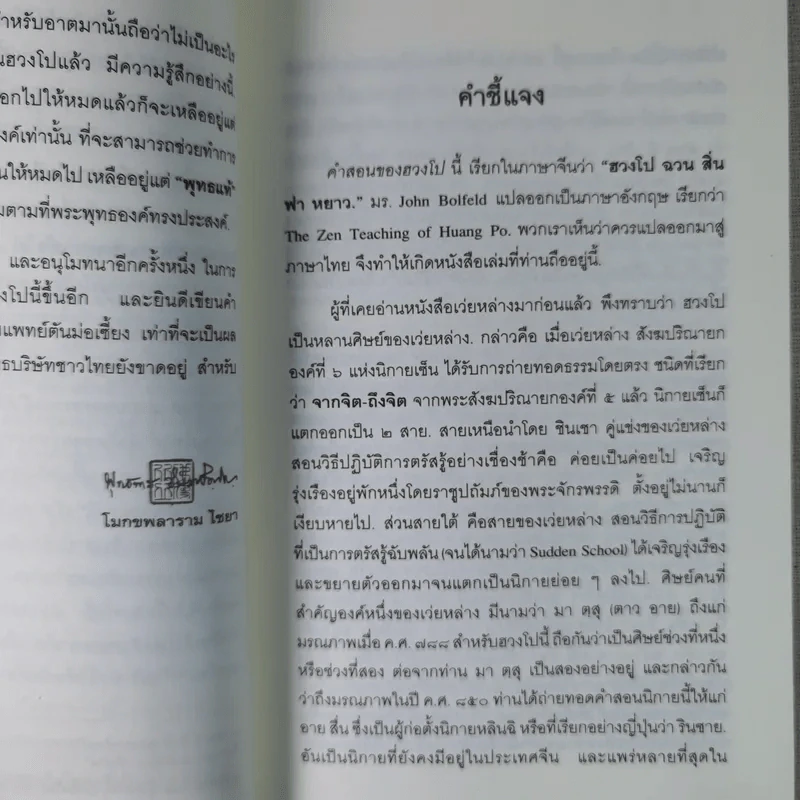 สำหรับอาตมานั้นถือว่าไม่เป็นอะไร
ฮวงโปแล้ว มีความรู้สึกอย่างนี้
ออกไปให้หมดแล้วก็จะเหลืออยู่แต่
องค์เท่านั้น ที่จะสามารถช่วยทำการ
ให้หมดไป เหลืออยู่แต่ "พุทธแท้"
ตามที่พระพุทธองค์ทรงประสงค์.
และอนุโมทนาอีกครั้งหนึ่ง ในการ
โปนี้ขึ้นอีก และยินดีเขียนคำ
แพทย์ตันม่อเซี้ยง เท่าที่จะเป็นผล
บริษัทชาวไทยยังขาดอยู่ สำหรับ
โมกขพลาราม ไชยา
คำชี้แจง
คำสอนของฮวงโป นี้ เรียกในภาษาจีนว่า "ฮวงโป ฉวน สิ่น
ฟา หยาว." มร. John Bolfeld แปลออกเป็นภาษาอังกฤษ เรียกว่า
The Zen Teaching of Huang Po. พวกเราเห็นว่าควรแปลออกมาสู่
ภาษาไทย จึงทำให้เกิดหนังสือเล่มที่ท่านถืออยู่นี้.
ผู้ที่เคยอ่านหนังสือเว่ยหล่างมาก่อนแล้ว พึงทราบว่า ฮวงโป
เป็นหลานศิษย์ของเว่ยหล่าง. กล่าวคือ เมื่อเว่ยหล่าง สังฆปริณายก
องค์ที่ ๖ แห่งนิกายเซ็น ได้รับการถ่ายทอดธรรมโดยตรง ชนิดที่เรียก
ว่า จากจิต-ถึงจิต จากพระสังฆปริณายกองค์ที่ ๕ แล้ว นิกายเซ็นก็
แตกออกเป็น ๒ สาย. สายเหนือนำโดย ชินเชา คู่แข่งของเว่ยหล่าง
สอนวิธีปฏิบัติการตรัสรู้อย่างเชื่องช้าคือ ค่อยเป็นค่อยไป เจริญ
รุ่งเรืองอยู่พักหนึ่งโดยราชูปถัมภ์ของพระจักรพรรดิ ตั้งอยู่ไม่นานก็
เงียบหายไป. ส่วนสายใต้ คือสายของเว่ยหล่าง สอนวิธีการปฏิบัติ
ที่เป็นการตรัสรู้ฉับพลัน (จนได้นามว่า Sudden School) ได้เจริญรุ่งเรือง
และขยายตัวออกมาจนแตกเป็นนิกายย่อย ๆ ลงไป. ศิษย์คนที่
สำคัญองค์หนึ่งของเว่ยหล่าง มีนามว่า มา ตฺสุ (ตาว อาย) ถึงแก่
มรณภาพเมื่อ ค.ศ. ๗๘๘ สำหรับฮวงโปนี้ ถือกันว่าเป็นศิษย์ช่วงที่หนึ่ง
หรือช่วงที่สอง ต่อจากท่าน มา ตฺสุ เป็นสองอย่างอยู่ และกล่าวกัน
ว่าถึงมรณภาพในปี ค.ศ. ๘๕๐ ท่านได้ถ่ายทอดคำสอนนิกายนี้ให้แก่
อาย สื่น ซึ่งเป็นผู้ก่อตั้งนิกายหลินฉิ หรือที่เรียกอย่างญี่ปุ่นว่า รินซาย.
อันเป็นนิกายที่ยังคงมีอยู่ในประเทศจีน และแพร่หลายที่สุดใน